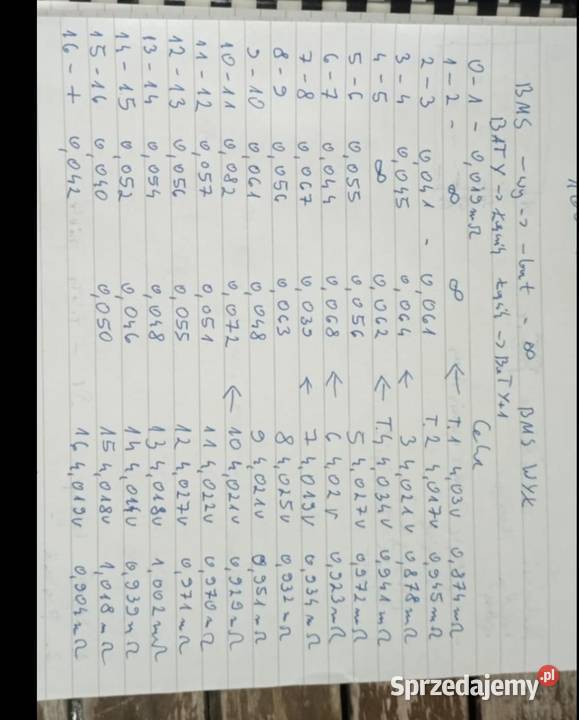 BMS - wy -> -bat = ∞ BMS WYK
BATY -> -> BATY+1
0-1 - 0,019mΩ Cela
1-2 - ∞ ∞ ← T.1 4,03V 0,874mΩ
2-3 0,041 - 0,061 T.2 4,017V 0,945mΩ
3-4 0,045 0,064 ← 3 4,021V 0,878mΩ
4-5 ∞ 0,062 ← T.4 4,034V 0,941mΩ
5-6 0,055 0,056 5 4,027V 0,972mΩ
6-7 0,044 0,068 ← 6 4,02V 0,923mΩ
7-8 0,067 0,039 ← 7 4,019V 0,934mΩ
8-9 0,056 0,063 8 4,025V 0,932mΩ
9-10 0,061 0,048 9 4,021V 0,951mΩ
10-11 0,082 0,072 ← 10 4,021V 0,929mΩ
11-12 0,057 0,051 11 4,022V 0,970mΩ
12-13 0,056 0,055 12 4,027V 0,971mΩ
13-14 0,054 0,048 13 4,018V 1,002mΩ
14-15 0,052 0,046 14 4,014V 0,939mΩ
15-16 0,040 0,050 15 4,018V 1,018mΩ
16-+ 0,042 16 4,019V 0,904mΩ
Sprzedajemy.pl